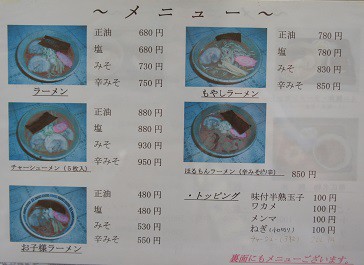 ～ メニュー ～
正油 680円
塩 680円
みそ 730円
辛みそ 750円
ラーメン
正油 780円
塩 780円
みそ 830円
辛みそ 850円
もやしラーメン
正油 880円
塩 880円
みそ 930円
辛みそ 950円
チャーシューメン（５枚入）
ほるもんラーメン 850円
正油 480円
塩 480円
みそ 530円
辛みそ 550円
お子様ラーメン
・トッピング 味付半熟玉子 100円
ワカメ 100円
メンマ 100円
ねぎ 100円
100円
裏面にもメニューございます。